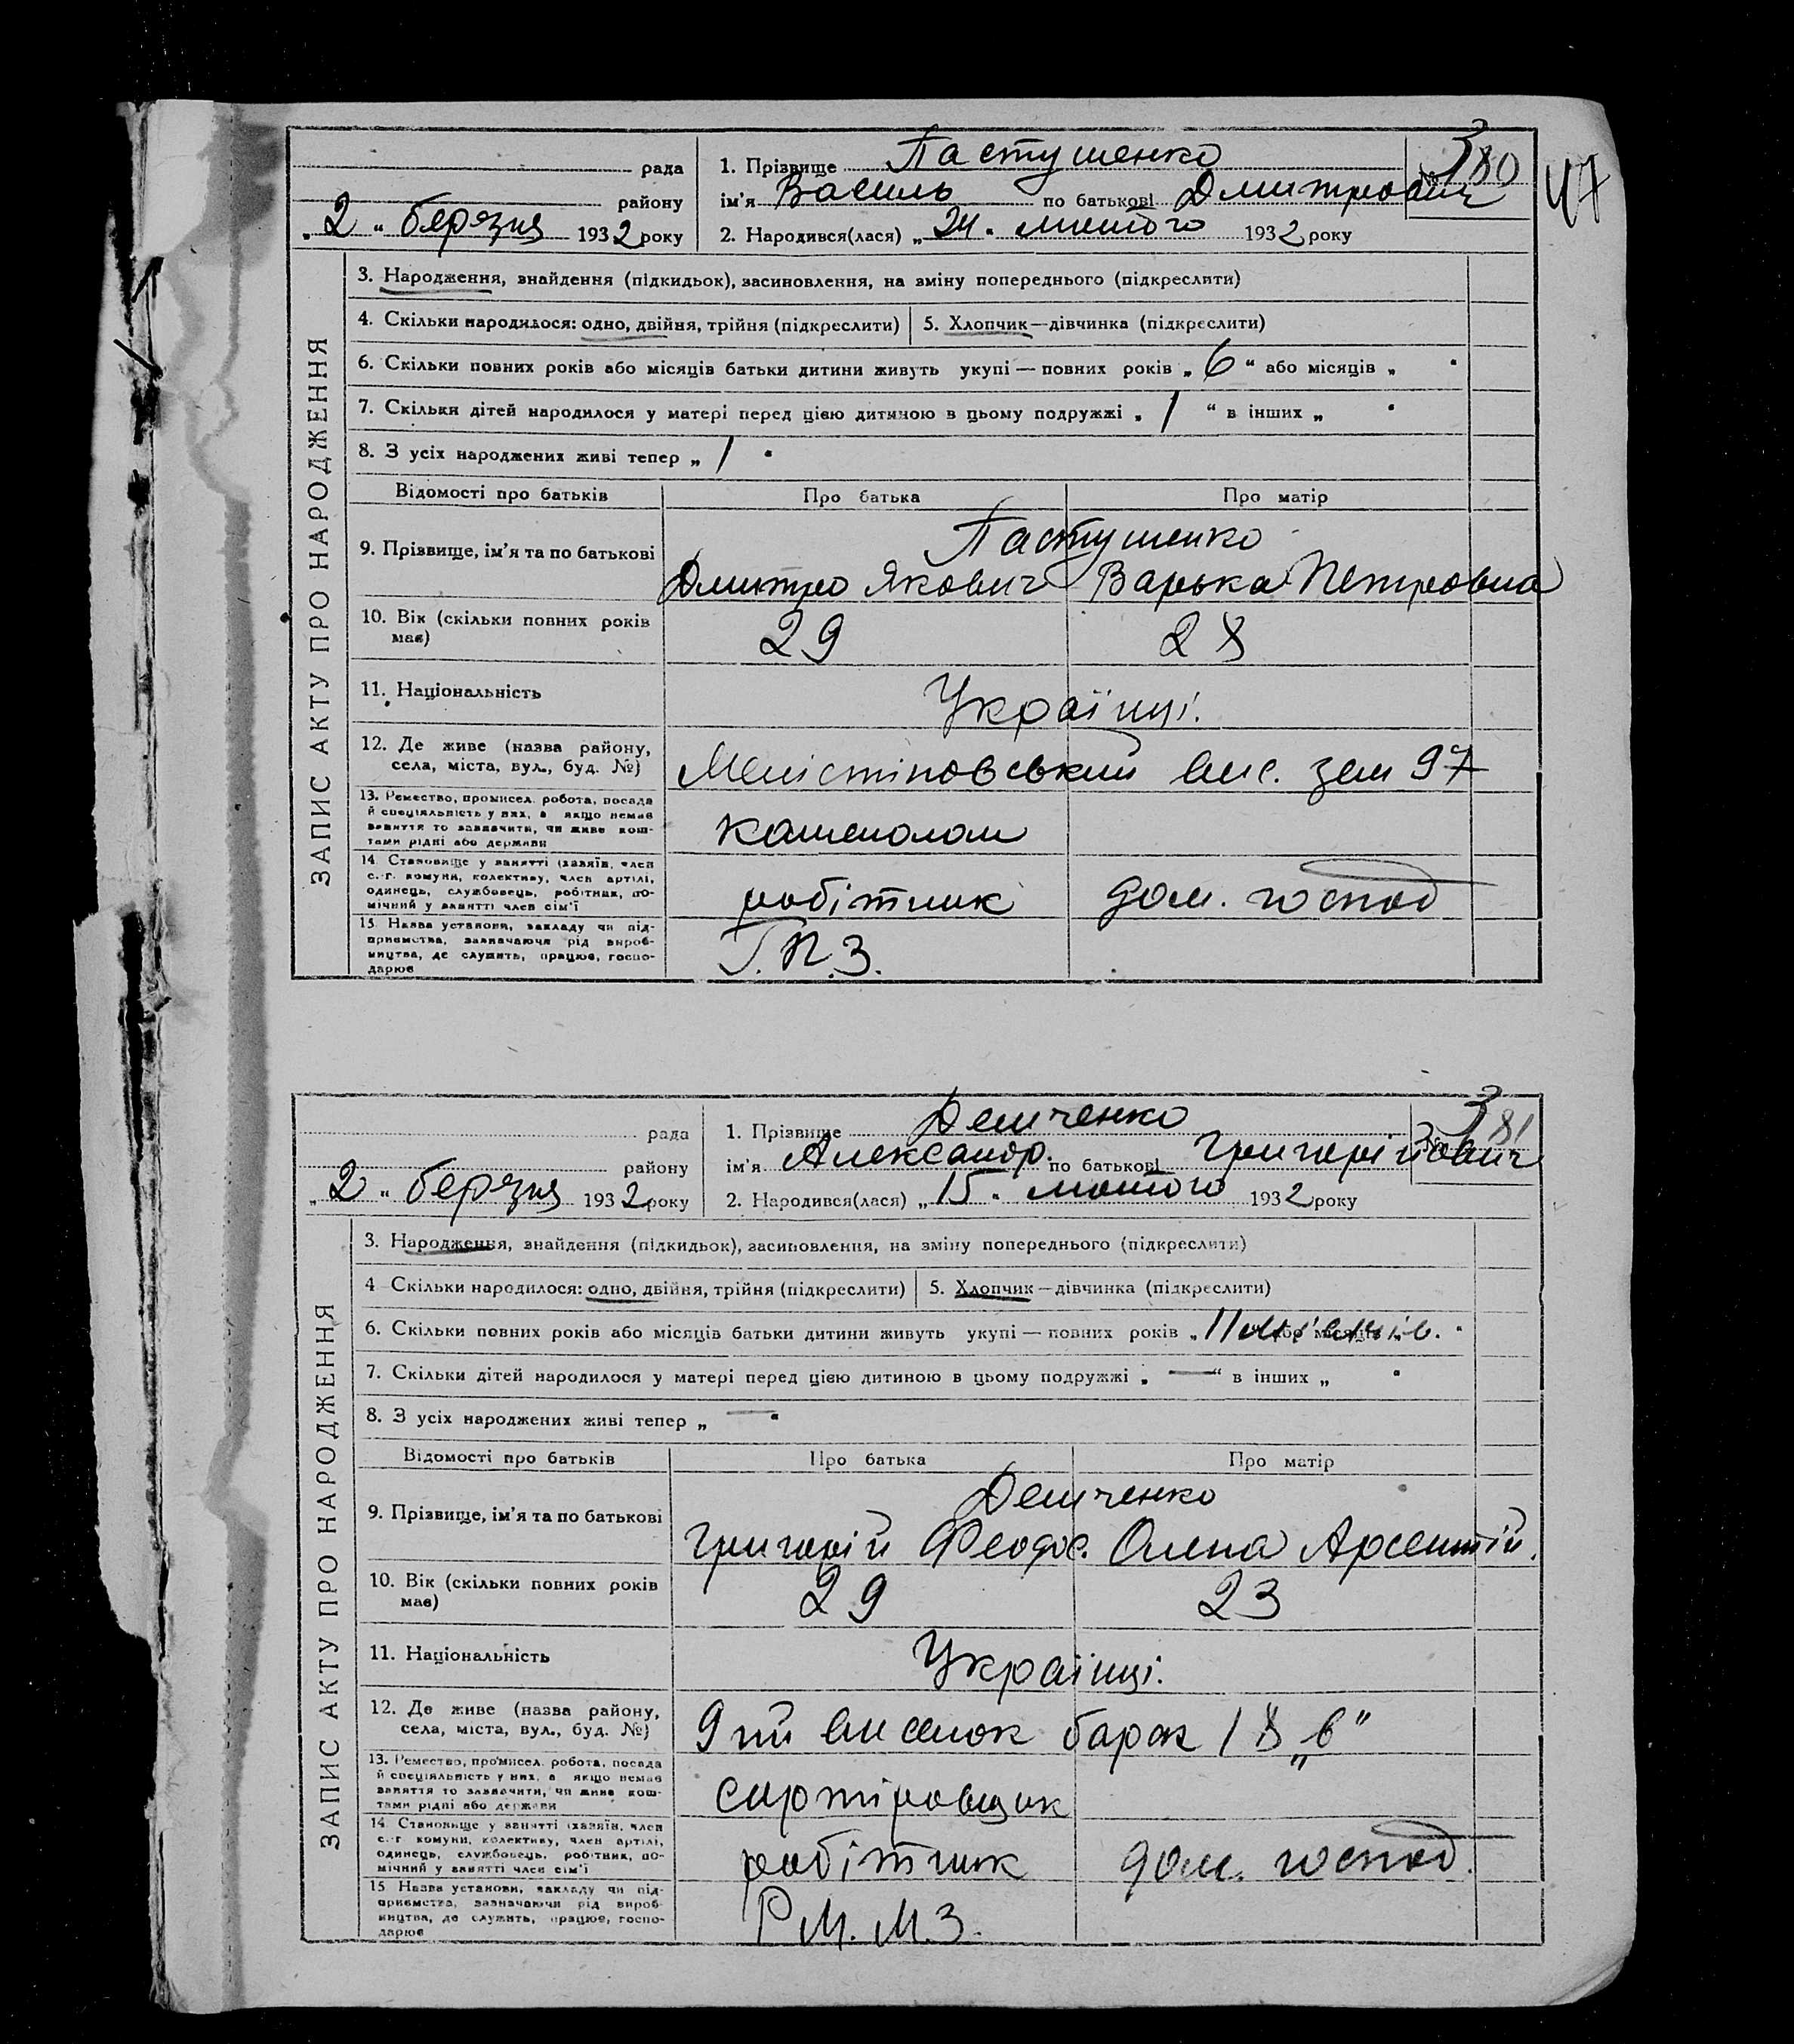 рада
1. Прізвище Пастушенко
380
47
району
ім'я Василь по батькові Дмитрович
„2“ березня 1932 року
2. Народився(лася) „24“ лютого 1932 року
ЗАПИС АКТУ ПРО НАРОДЖЕННЯ
3. Народження, знайдення (підкидьок), засиновлення, на зміну попереднього (підкреслити)
4. Скільки народилося: одно, двійня, трійня (підкреслити)
5. Хлопчик—дівчинка (підкреслити)
6. Скільки повних років або місяців батьки дитини живуть укупі — повних років „6“ або місяців „ “
7. Скільки дітей народилося у матері перед цією дитиною в цьому подружжі „1“ в інших „ “
8. З усіх народжених живі тепер „1“
Відомості про батьків
Про батька
Про матір
9. Прізвище, ім'я та по батькові
Пастушенко
Дмитро Якович Варька Петровна
10. Вік (скільки повних років
має)
29
28
11. Національність
Українці.
12. Де живе (назва району,
села, міста, вул., буд. №)
вис. зем 97
13. Ремество, промисел, робота, посада
й спеціяльність у них, а якщо немає
заняття то зазначити, чи живе кош-
тами рідні або держави
каменолом
14. Становище у занятті (хазяїн, член
с.-г. комуни, колективу, член артілі,
одинець, службовець, робітник, по-
мічний у занятті член сім'ї
робітник
дом. господ
15. Назва установи, закладу чи під-
приємства, зазначаючи рід вироб-
ництва, де служить, працює, госпо-
дарює
Г.П.З.
рада
1. Прізвище Демченко
381
району
ім'я Александр. по батькові Григорійович
„2“ березня 1932 року
2. Народився(лася) „15“ лютого 1932 року
ЗАПИС АКТУ ПРО НАРОДЖЕННЯ
3. Народження, знайдення (підкидьок), засиновлення, на зміну попереднього (підкреслити)
4 Скільки народилося: одно, двійня, трійня (підкреслити)
5. Хлопчик—дівчинка (підкреслити)
6. Скільки повних років або місяців батьки дитини живуть укупі — повних років „11 місяців.
7. Скільки дітей народилося у матері перед цією дитиною в цьому подружжі „—“ в інших „ “
8. З усіх народжених живі тепер „—“
Відомості про батьків
Про батька
Про матір
9. Прізвище, ім'я та по батькові
Демченко
Григорій Феодос. Олена Арсентій.
10. Вік (скільки повних років
має)
29
23
11. Національність
Українці.
12. Де живе (назва району,
села, міста, вул., буд. №)
9тий виселок барак 18 „в“
13. Ремество, промисел, робота, посада
й спеціяльність у них, а якщо немає
заняття то зазначити, чи живе кош-
тами рідні або держави
сортіровщик
14. Становище у занятті (хазяїн, член
с.-г комуни, колективу, член артілі,
одинець, службовець, робітник, по-
мічний у занятті член сім'ї
робітник
дом. господ.
15 Назва установи, закладу чи під-
приємства, зазначаючи рід вироб-
ництва, де служить, працює, госпо-
дарює
Р.М.М.З.